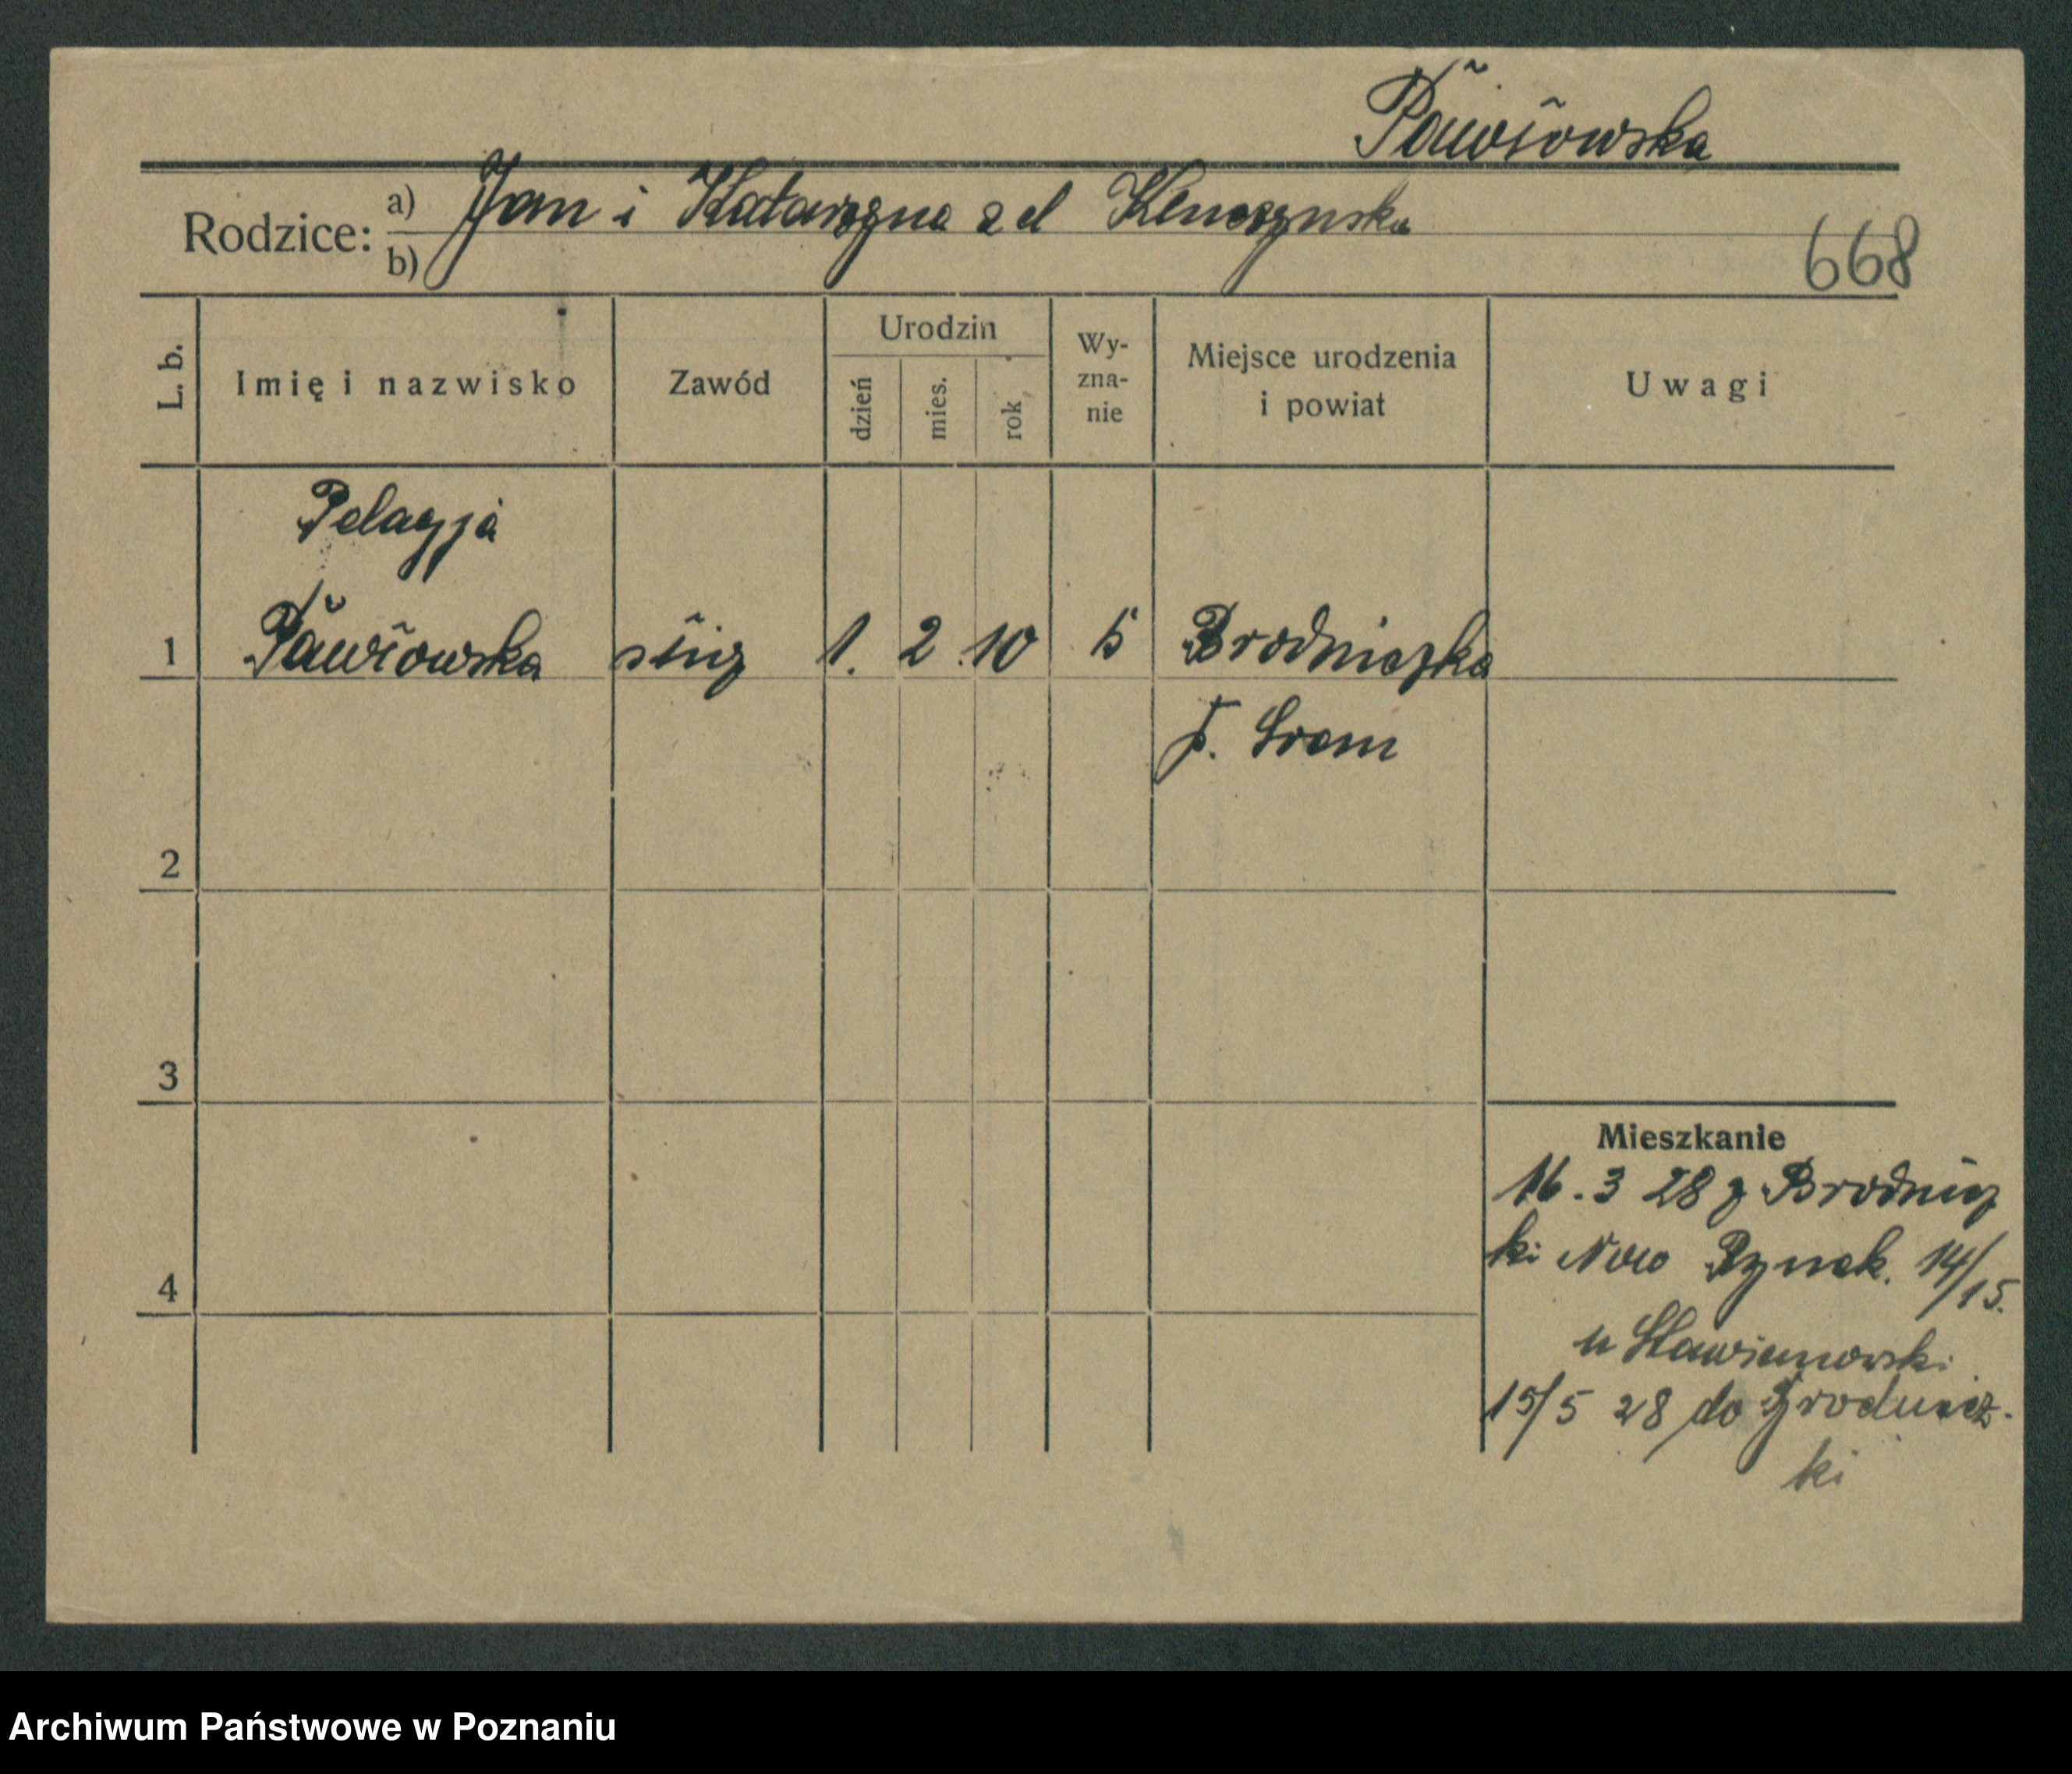 Pawłowska
Rodzice: a) Jan i Katarzyna zd
b)
668
L. b. Imię i nazwisko Zawód Urodzin dzień mies. rok Wy-zna-nie Miejsce urodzenia i powiat Uwagi
Pelagja
1 Pawłowska służ 1. 2 10 Brodniczka
Srem
2
3
4
Mieszkanie
16. 3 28 z Brodnicz
ki Nowo Rynek. 14/15.
u
15/5 28 do Brodnicz-
ki
Archiwum Państwowe w Poznaniu